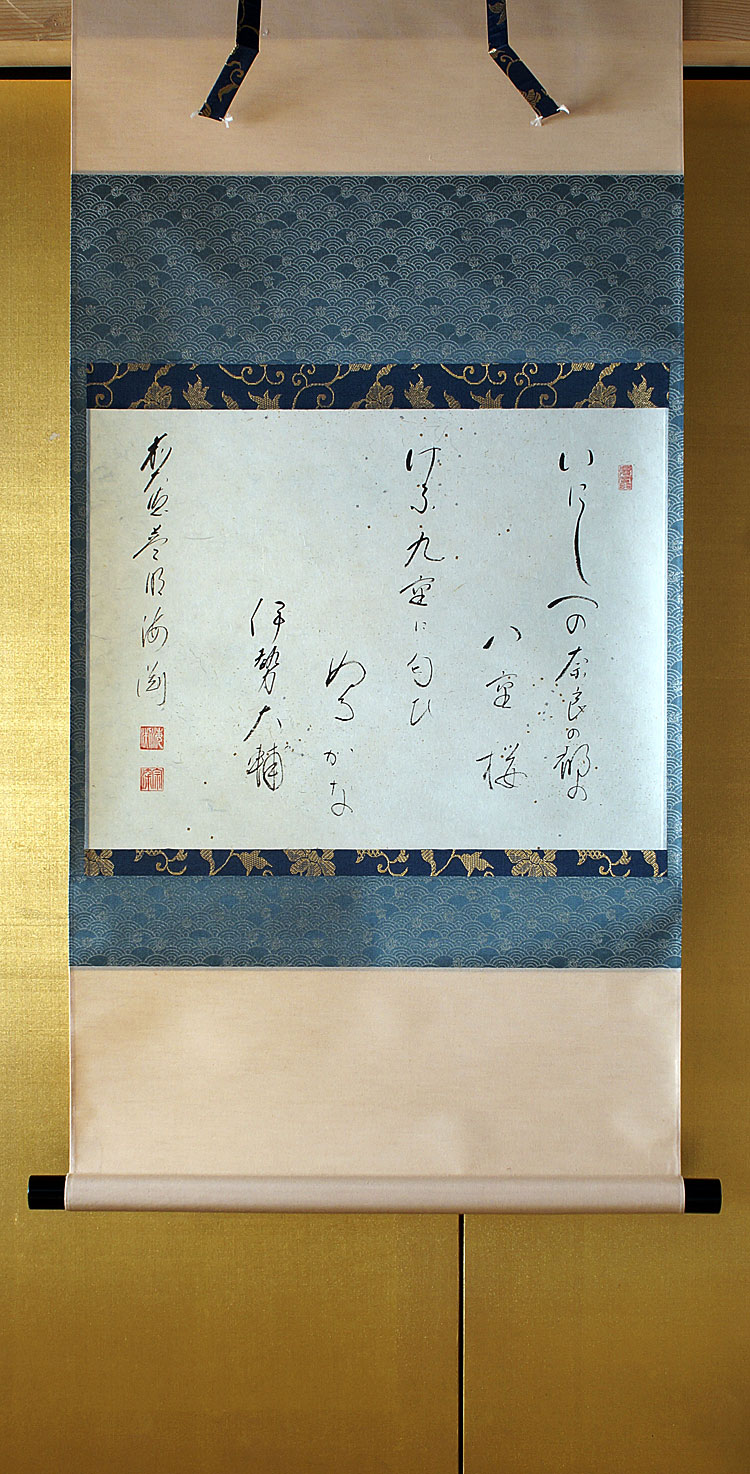 いにしへの奈良の都の
八重桜
けふ九重に匂ひ
ぬるかな
伊勢大輔
海